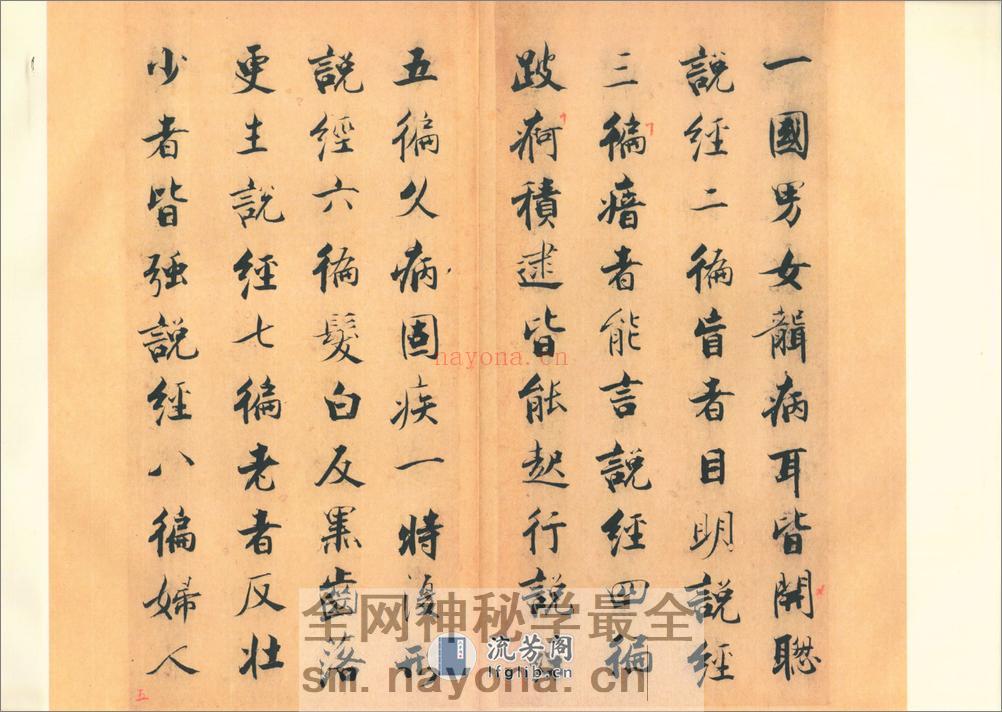 一國男女聾病耳皆開聰
說經二徧盲者目明說經
三徧瘖者能言說經四徧
跛痾積逮皆能起行說經
五徧久病固疾一時復形
說經六徧髮白反黑齒落
更生說經七徧老者反壯
少者皆强說經八徧婦人
五
nayona.cn
全网神秘学最全
流芳阁
lfglib.cn
sm.nayona.cn